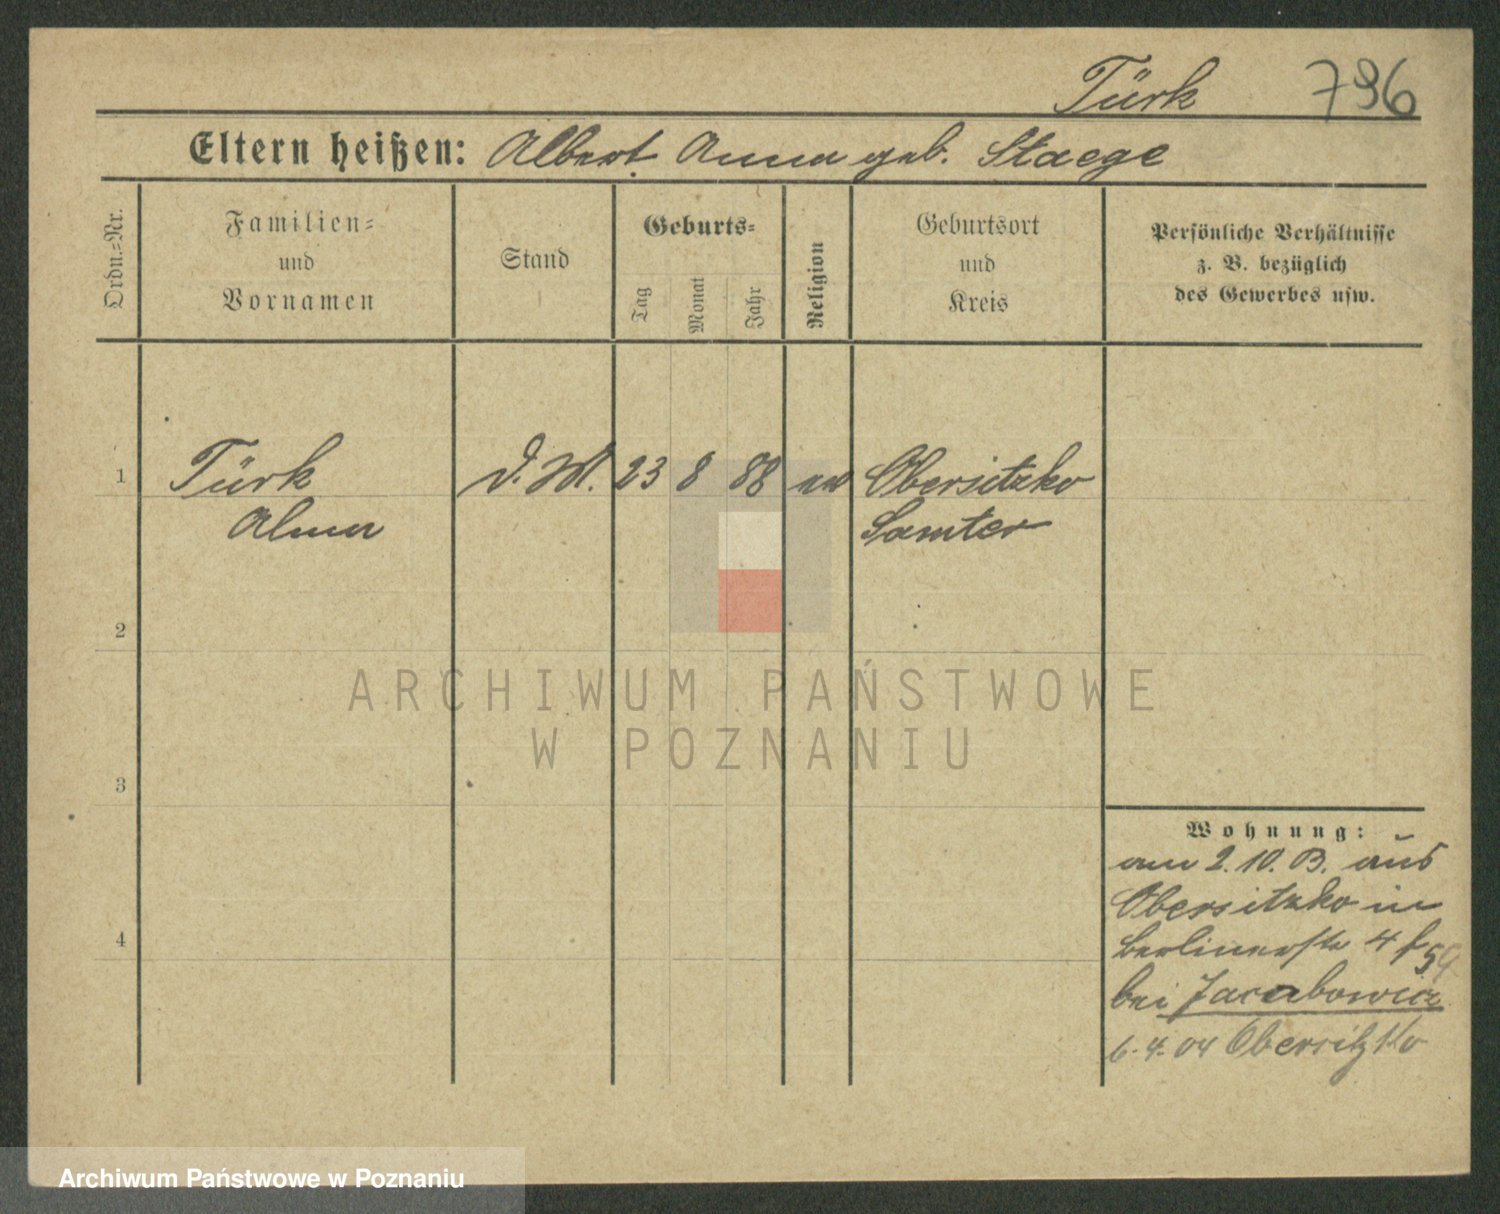 Türk 796
Eltern heißen: Albert Anna geb. Staege
Ordn.=Nr.
Familien=
und
Vornamen
Stand
Geburts=
Tag
Monat
Jahr
Religion
Geburtsort
und
Kreis
Persönliche Verhältnisse
z. B. bezüglich
des Gewerbes usw.
1 Türk D. M. 23 8 88 ev Obersitzko
Alma Samter
2
ARCHIWUM PAŃSTWOWE
W POZNANIU
3
Wohnung:
am 2. 10. 03. aus
Obersitzko in
4
Berlinerstr 4
bei Jacubowicz
6. 4. 04 Obersitzko
Archiwum Państwowe w Poznaniu